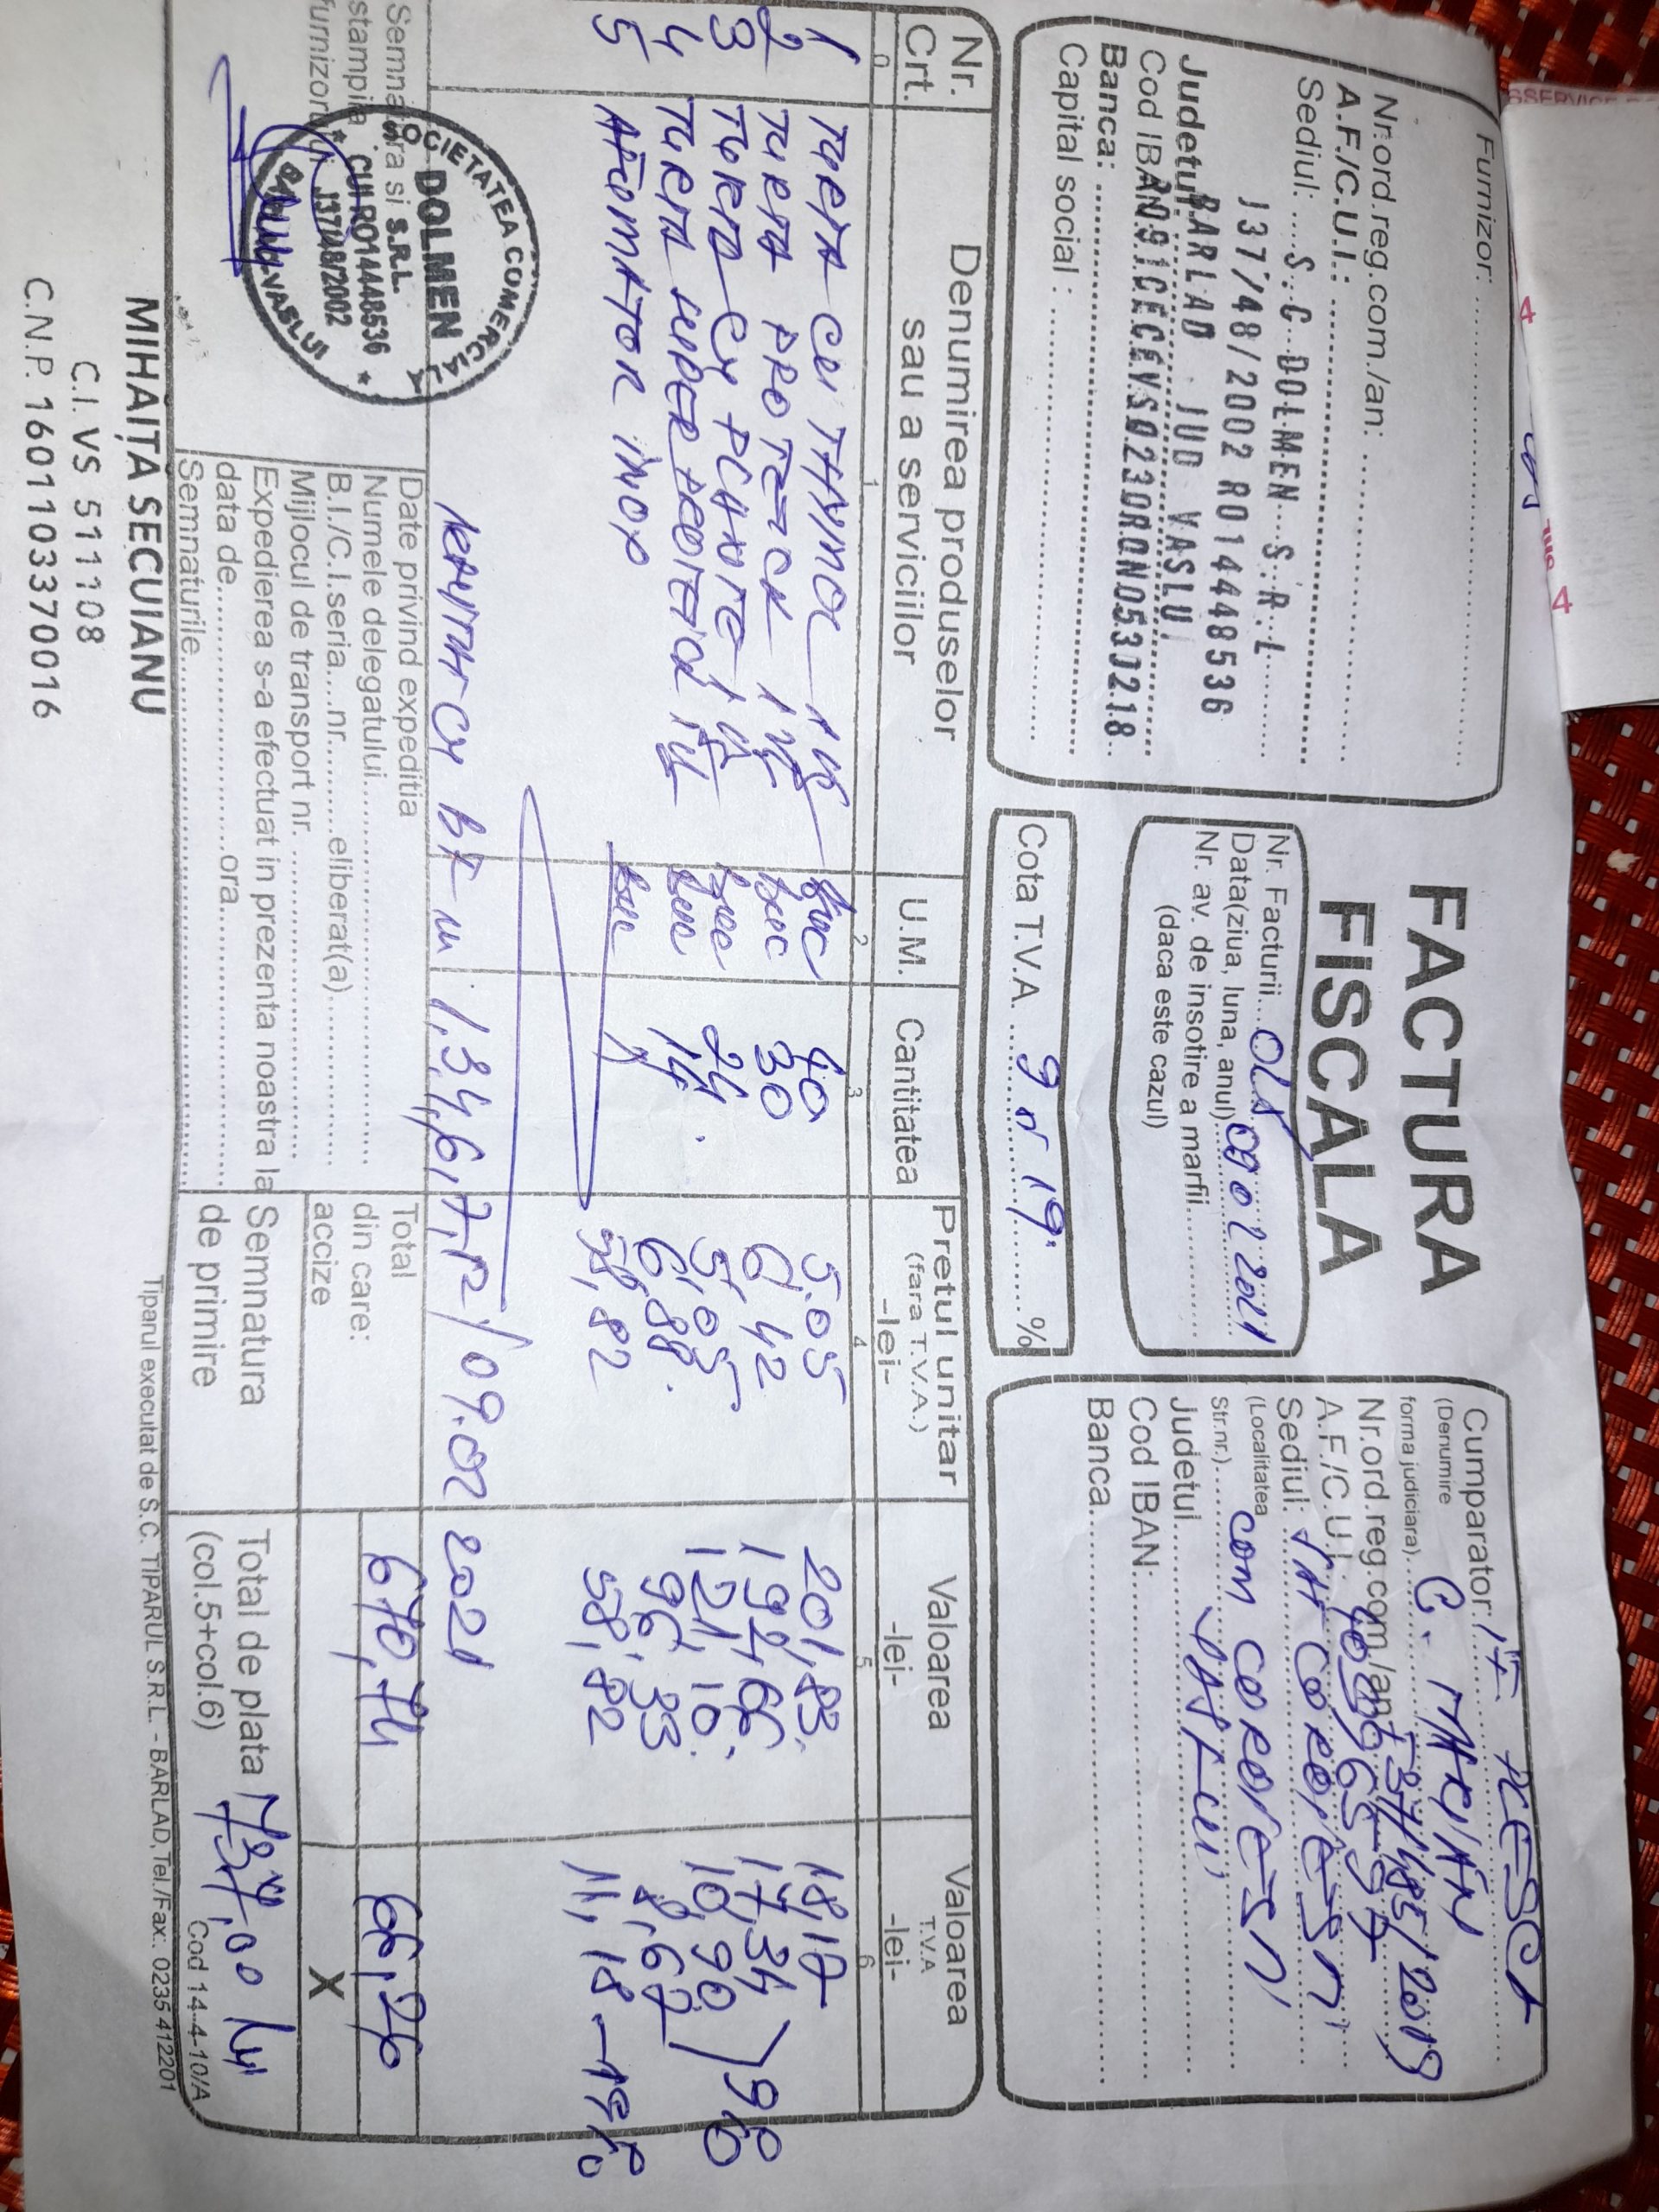 Furnizor:
Nr.ord.reg.com./an:
A.F./C.U.I.:
Sediul: S.C DOLMEN S.R.L
J37/48/2002 RO14448536
Judetul: BARLAD JUD VASLUI
Cod IBAN: RO91CECEVS0230RON0530218
Banca:
Capital social :
FACTURA
FISCALA
Nr. Facturii
Data(ziua, luna, anul) 09 02 2021
Nr. av. de insotire a marfii
(daca este cazul)
Cota T.V.A. 9 si 19. %
Cumparator:
(Denumire
forma judiciara) C. MARIAN
Nr.ord.reg.com/an: F37/485/2019
A.F./C.U.I.: 40996597
Sediul: SAT COROIESTI
(Localitatea COM COROIESTI
Str.nr.) VASLUI
Judetul
Cod IBAN:
Banca
Nr. Crt. Denumirea produselor sau a serviciilor U.M. Cantitatea Pretul unitar (fara T.V.A.) -lei- Valoarea -lei- Valoarea T.V.A -lei-
0 1 2 3 4 5 6
1 TURTA CU THYMOL buc 40 5.05 201,83 18,17
2 TURTA PROTEICA buc 30 6,42 192,66 17,34
3 TURTA CU PLANTE buc 24 5,05 121,10 10,90 9%
4 TURTA SUPER PROTEICA buc 14 6,88 96,33 8,67
5 AFUMATOR INOX buc 1 58,82 58,82 11,18 - 19%
1,3,4,6,7,12/09.02 2021
Semnatura si
stampila
furnizorului
SOCIETATEA COMERCIALA
DOLMEN
S.R.L.
CUI RO14448536
J37/48/2002
BARLAD-VASLUI
Date privind expeditia
Numele delegatului
B.I./C.I.seria nr. eliberat(a)
Mijlocul de transport nr.
Expedierea s-a efectuat in prezenta noastra la
data de ora
Semnaturile
Total
din care:
accize
670,74 66,26
X
Semnatura
de primire
Total de plata
(col.5+col.6)
737,00 lei
Cod 14-4-10/A
Tiparul executat de S.C. TIPARUL S.R.L. - BARLAD,Tel./Fax.: 0235 412201
MIHAIȚĂ SECUIANU
C.I. VS 511108
C.N.P. 1601103370016